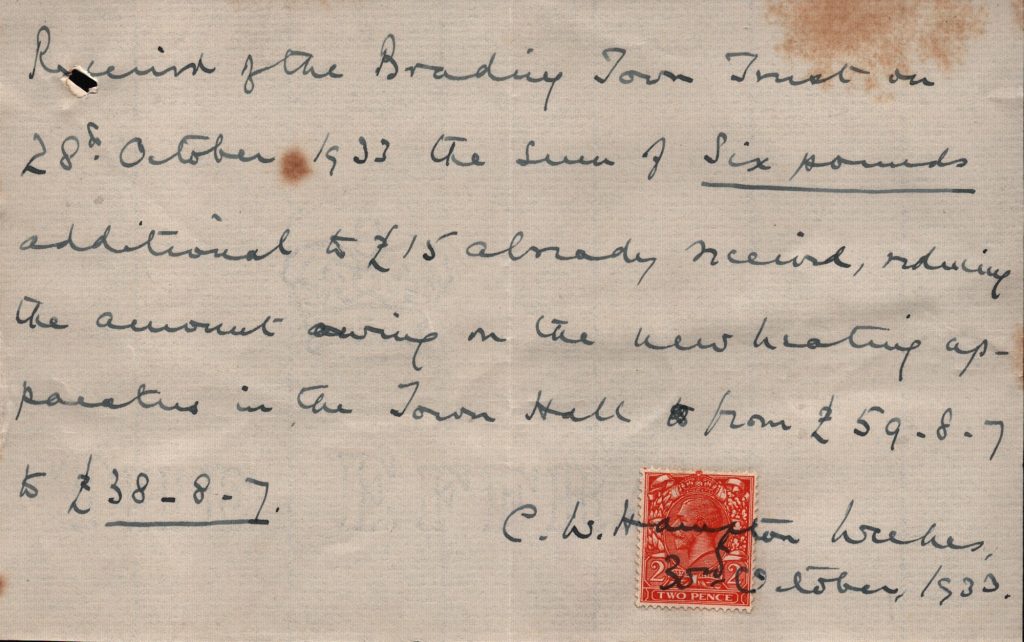 Received of the Brading Town Trust on
28th. October 1933 the sum of Six pounds
additional to £15 already received, reducing
the amount owing on the new heating ap-
paratus in the Town Hall from £59-8-7
to £38-8-7.
C. W. Hampton Weekes,
October, 1933.
2
TWO PENCE